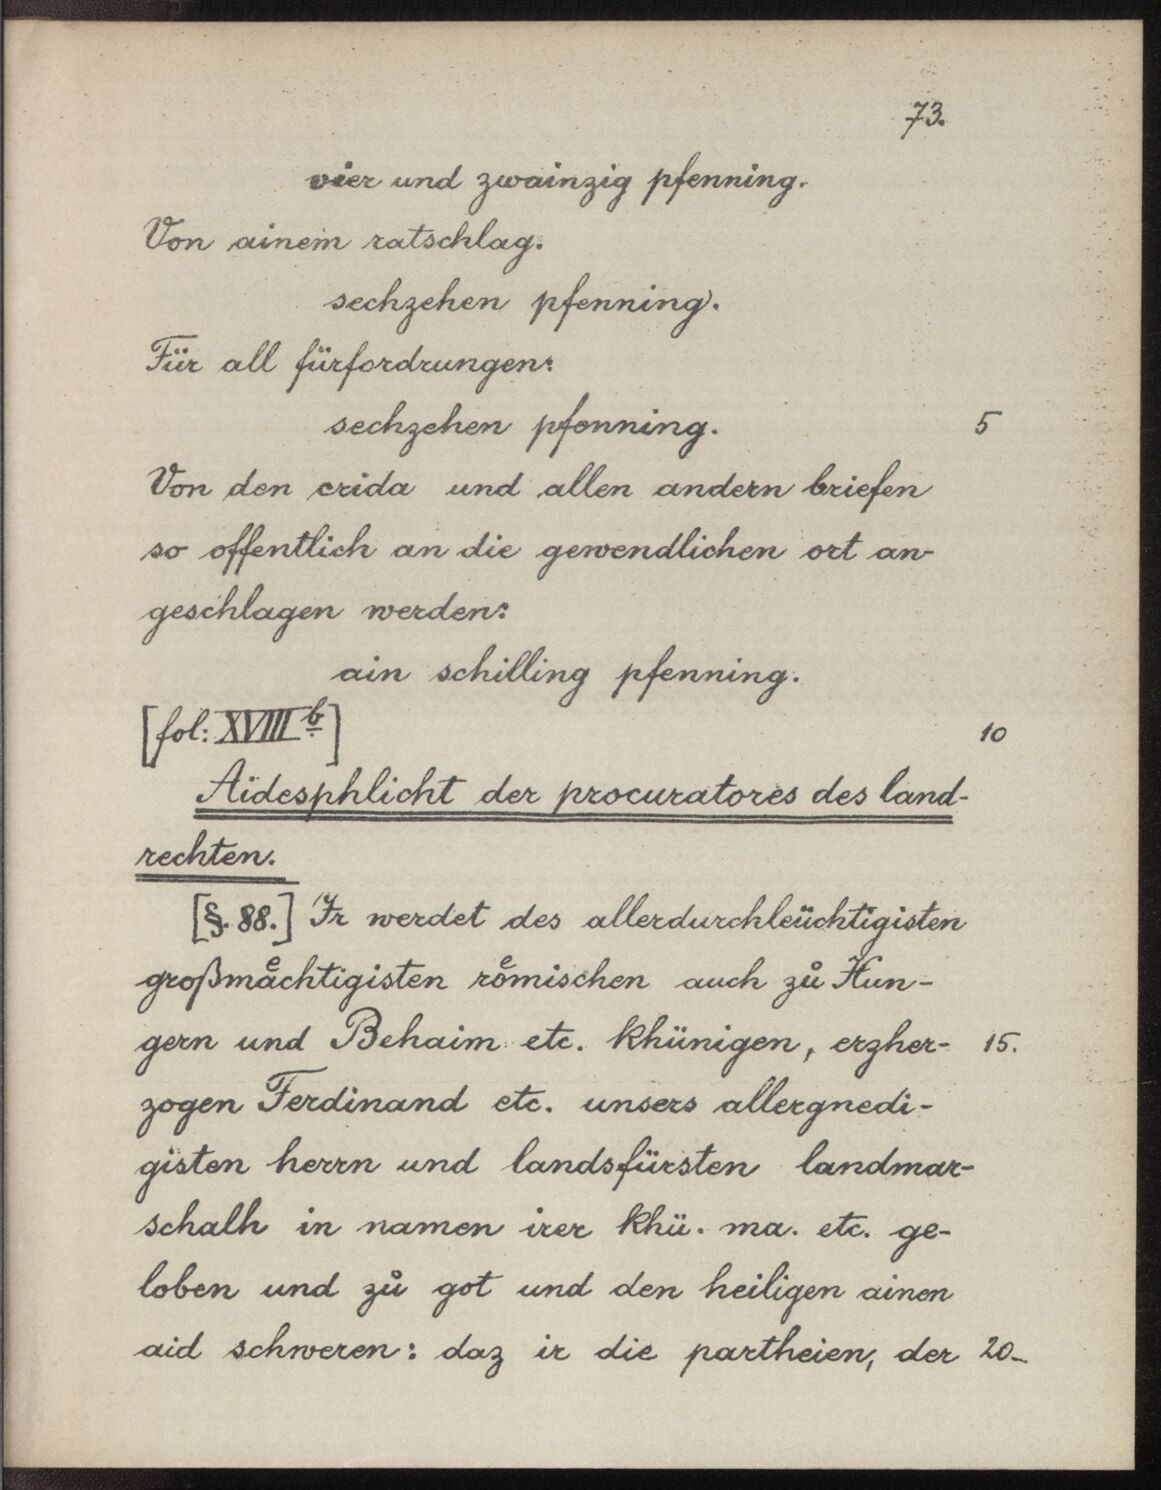 73.
vier und zwainzig pfenning.
Von ainem ratschlag.
sechzehen pfenning.
Für all fürfordrungen:
sechzehen pfenning. 5
Von den crida und allen andern briefen
so offentlich an die gewendlichen ort an-
geschlagen werden:
ain schilling pfenning.
[fol: XVIII b] 10
Aidesphlicht der procuratores des land-
rechten.
[§. 88.] Ir werdet des allerdurchleüchtigisten
großmaͤchtigisten roͤmischen auch zů Hun-
gern und Behaim etc. khünigen, erzher- 15.
zogen Ferdinand etc. unsers allergnedi-
gisten herrn und landsfürsten landmar-
schalh in namen irer khü. ma. etc. ge-
loben und zů got und den heiligen ainen
aid schweren: daz ir die partheien, der 20